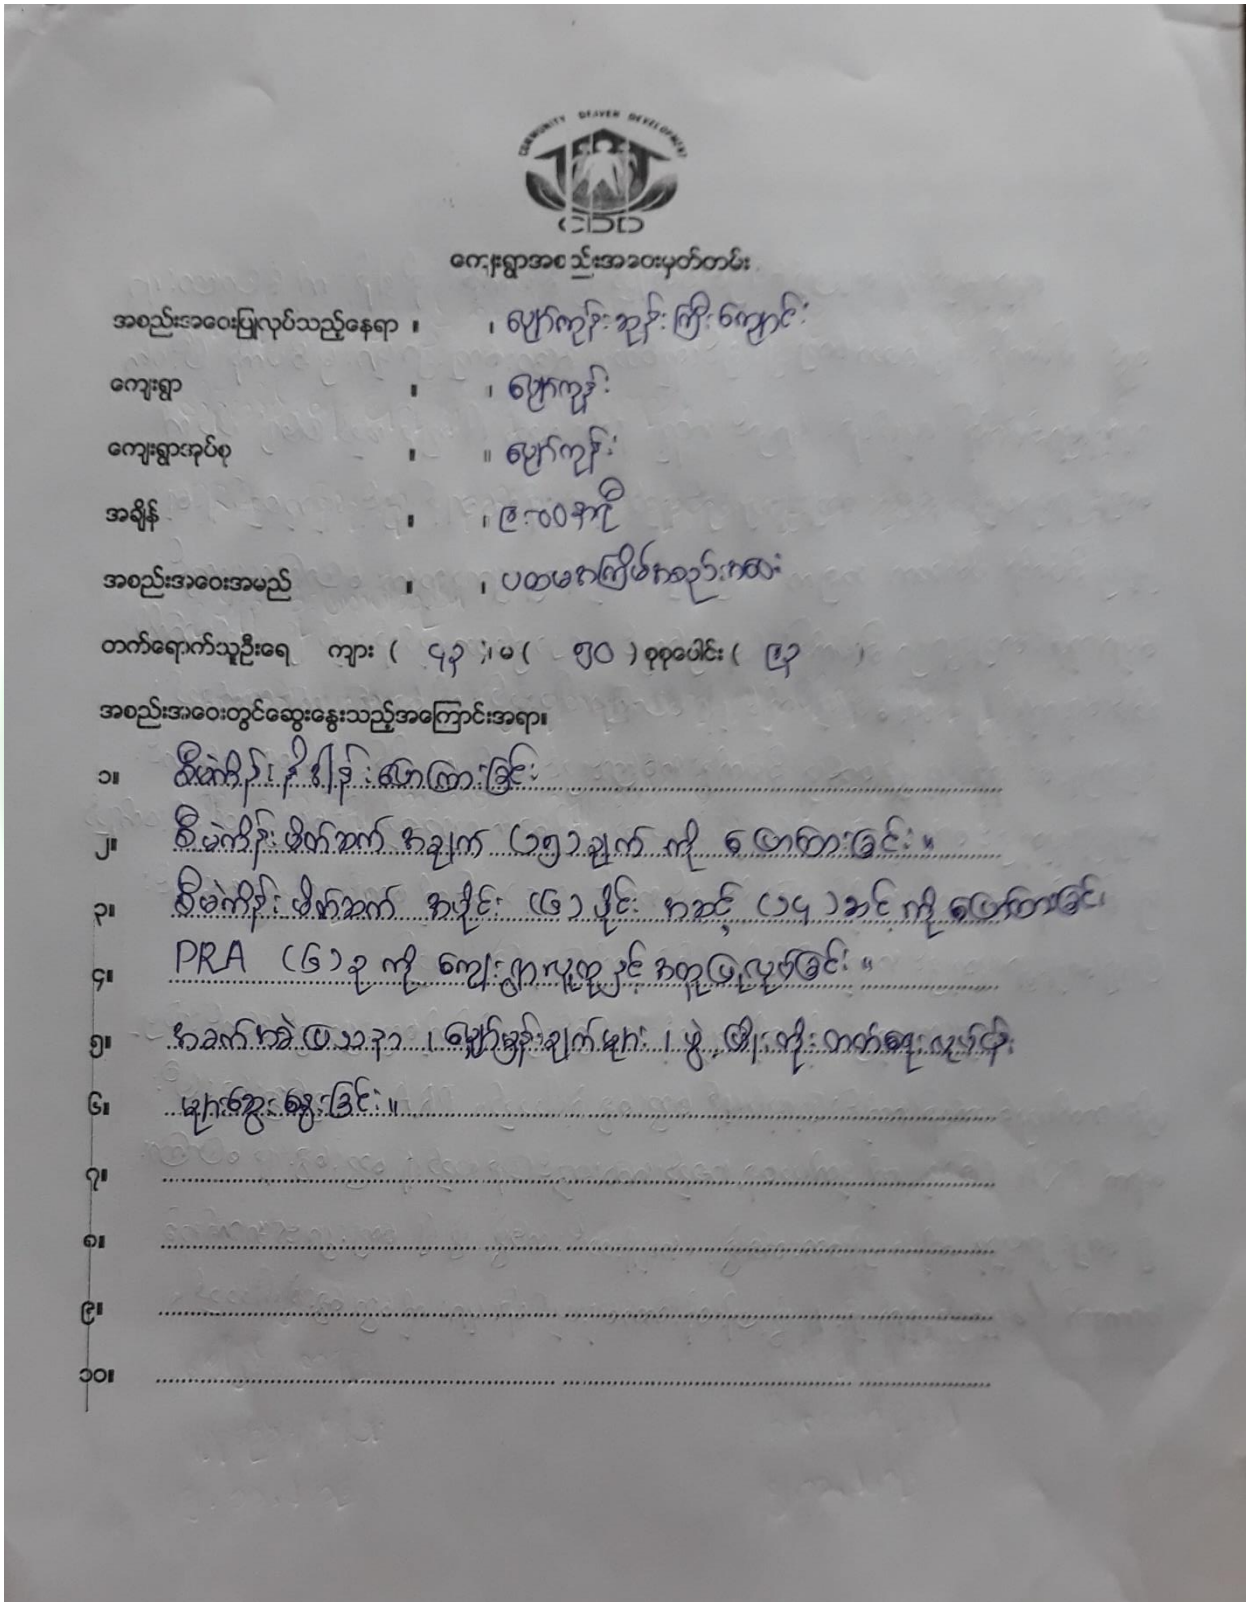 COMMUNITY DRIVEN DEVELOPMENT
CDD
ကျေးရွာအစည်းအဝေးမှတ်တမ်း
အစည်းအဝေးပြုလုပ်သည့်နေရာ ။ ၊ ပျော်ကုန်းဘုန်းကြီးကျောင်း
ကျေးရွာ ။ ၊ ပျော်ကုန်း
ကျေးရွာအုပ်စု ။ ။ ပျော်ကုန်း
အချိန် ။ ။ ၉-၀၀နာရီ
အစည်းအဝေးအမည် ။ ၊ ပထမအကြိမ်အစည်းအဝေး
တက်ရောက်သူဦးရေ ကျား ( ၄၃ )၊ မ ( ၅၀ ) စုစုပေါင်း ( ၉၃ )
အစည်းအဝေးတွင်ဆွေးနွေးသည့်အကြောင်းအရာ။
၁။ စီမံကိန်းနိဒါန်းပြောကြားခြင်း
၂။ စီမံကိန်းမိတ်ဆက် အချက် (၁၅) ချက် ကို ပြောကြားခြင်း။
၃။ စီမံကိန်းမိတ်ဆက် အပိုင်း (၆) ပိုင်း အဆင့် (၁၄) ဆင့် ကို ပြောကြားခြင်း
၄။ PRA (၆) ခု ကို ကျေးရွာလူထုနှင့် အတူပြုလုပ်ခြင်း။
၅။ အခက်အခဲပြဿနာ ၊ မျှော်မှန်းချက်များ ၊ ဖွံ့ဖြိုးတိုးတက်ရေးလုပ်ငန်း
၆။ များဆွေးနွေးခြင်း။
၇။
၈။
၉။
၁၀။